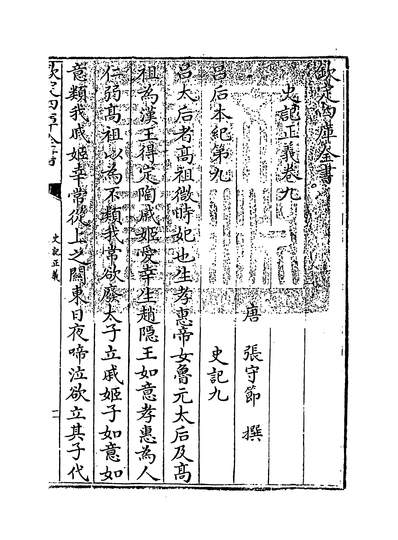 欽定四庫全書
史記正義卷九
唐 張守節 撰
呂后本紀第九 史記九
呂太后者髙祖微時妃也生孝惠帝女魯元太后及髙
祖為漢王得定陶戚姬愛幸生趙隠王如意孝惠為人
仁弱髙祖以為不類我常欲廢太子立戚姬子如意如
意類我戚姬幸常從上之闗東日夜啼泣欲立其子代
欽定四庫全書
史記正義